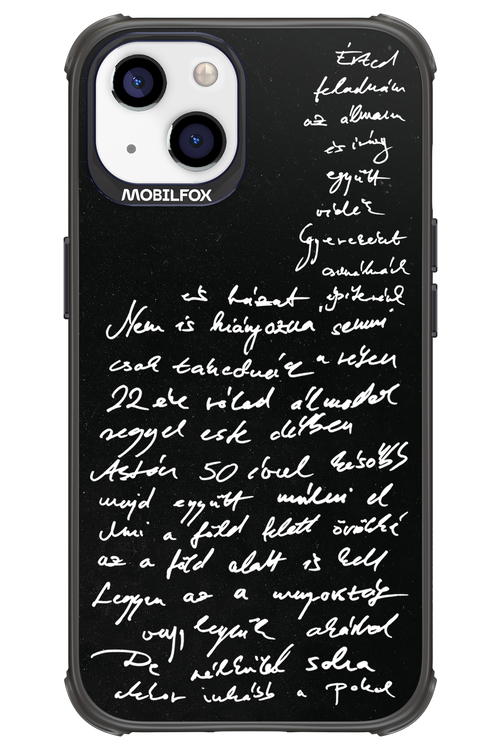 MOBILFOX
Érted
feladnám
az álmom
és irány
együtt
vidék
Gyerekeint
csinálnák
és házat építenék
Nem is hiányozna semmi
csak takednéz a réten
22 éve rólad álmodok
reggel este délben
Aztán 50 évvel később
majd együtt múlni el
Ami a föld felett örökké
az a föld alatt is kell
Legyen az a mennyország
vagy legyünk akárhol
De nélküled soha
akkor inkább a pokol